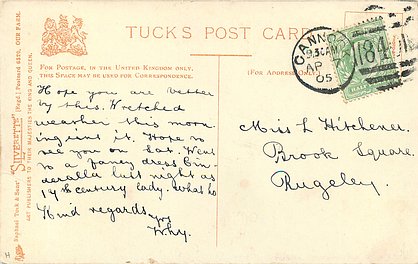 TUCK'S POST CARD
CANNO
9.30AM
AP
05
184
HALF
FOR POSTAGE, IN THE UNITED KINGDOM ONLY,
THIS SPACE MAY BE USED FOR CORRESPONDENCE.
(FOR ADDRESS ONLY.)
Raphael Tuck & Sons' "SILVERETTE" [Regd.] Postcard 6270, OUR FARM.
ART PUBLISHERS TO THEIR MAJESTIES THE KING AND QUEEN.
Hope you are better
by this. Wretched
weather this morn
ing isn't it. Hope to
see you on Sat. Went
to a fancy dress Cin-
deralla last night as
17th century lady. What ho
Kind regards
Yrs
Why.
Miss L Hitchener.
Brook Square.
Rugeley.
H